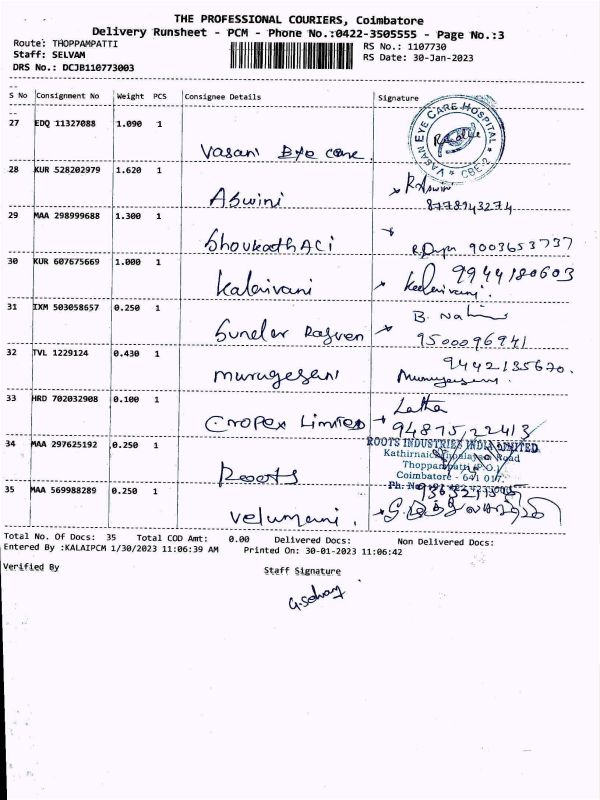 THE PROFESSIONAL COURIERS, Coimbatore
Delivery Runsheet - PCM - Phone No.:0422-3505555 - Page No.:3
Route: THOPPAMPATTI
RS No.: 1107730
Staff: SELVAM
RS Date: 30-Jan-2023
DRS No.: DCJB110773003
S No Consignment No Weight PCS Consignee Details Signature
27 EDQ 11327088 1.090 1
Vasani Eye care
VASAN EYE CARE HOSPITAL
* CBE-2 *
28 KUR 528202979 1.620 1
Aswini R. Aswini
8778943274
29 MAA 298999688 1.300 1
ShoukathAli 9003653737
30 KUR 607675669 1.000 1
Kalaivani Kalaivani. 9944180603
31 IXM 503058657 0.250 1
Sunder B.
9500096941
32 TVL 1229124 0.430 1
9442135670.
murugesani Murugesan.
33 HRD 702032908 0.100 1
Latha
Cropex Limited 94875,22413
34 MAA 297625192 0.250 1
Roots
ROOTS INDUSTRIES INDIA LIMITED
Road
Thoppampatti (P.O.)
Coimbatore - 641 017.
35 MAA 569988289 0.250 1
Velumani.
Total No. Of Docs: 35 Total COD Amt: 0.00 Delivered Docs: Non Delivered Docs:
Entered By :KALAIPCM 1/30/2023 11:06:39 AM Printed On: 30-01-2023 11:06:42
Verified By Staff Signature
G. Selvam